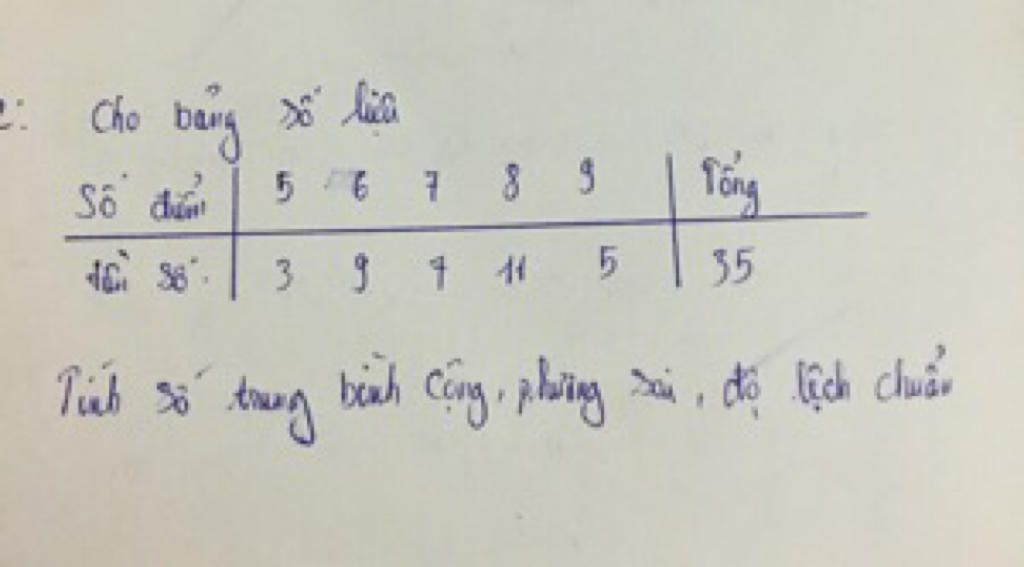 2: Cho bảng số liệu
Số điểm 5 6 7 8 9 Tổng
tần số 3 9 7 11 5 35
Tính số trung bình cộng, phương sai, độ lệch chuẩn